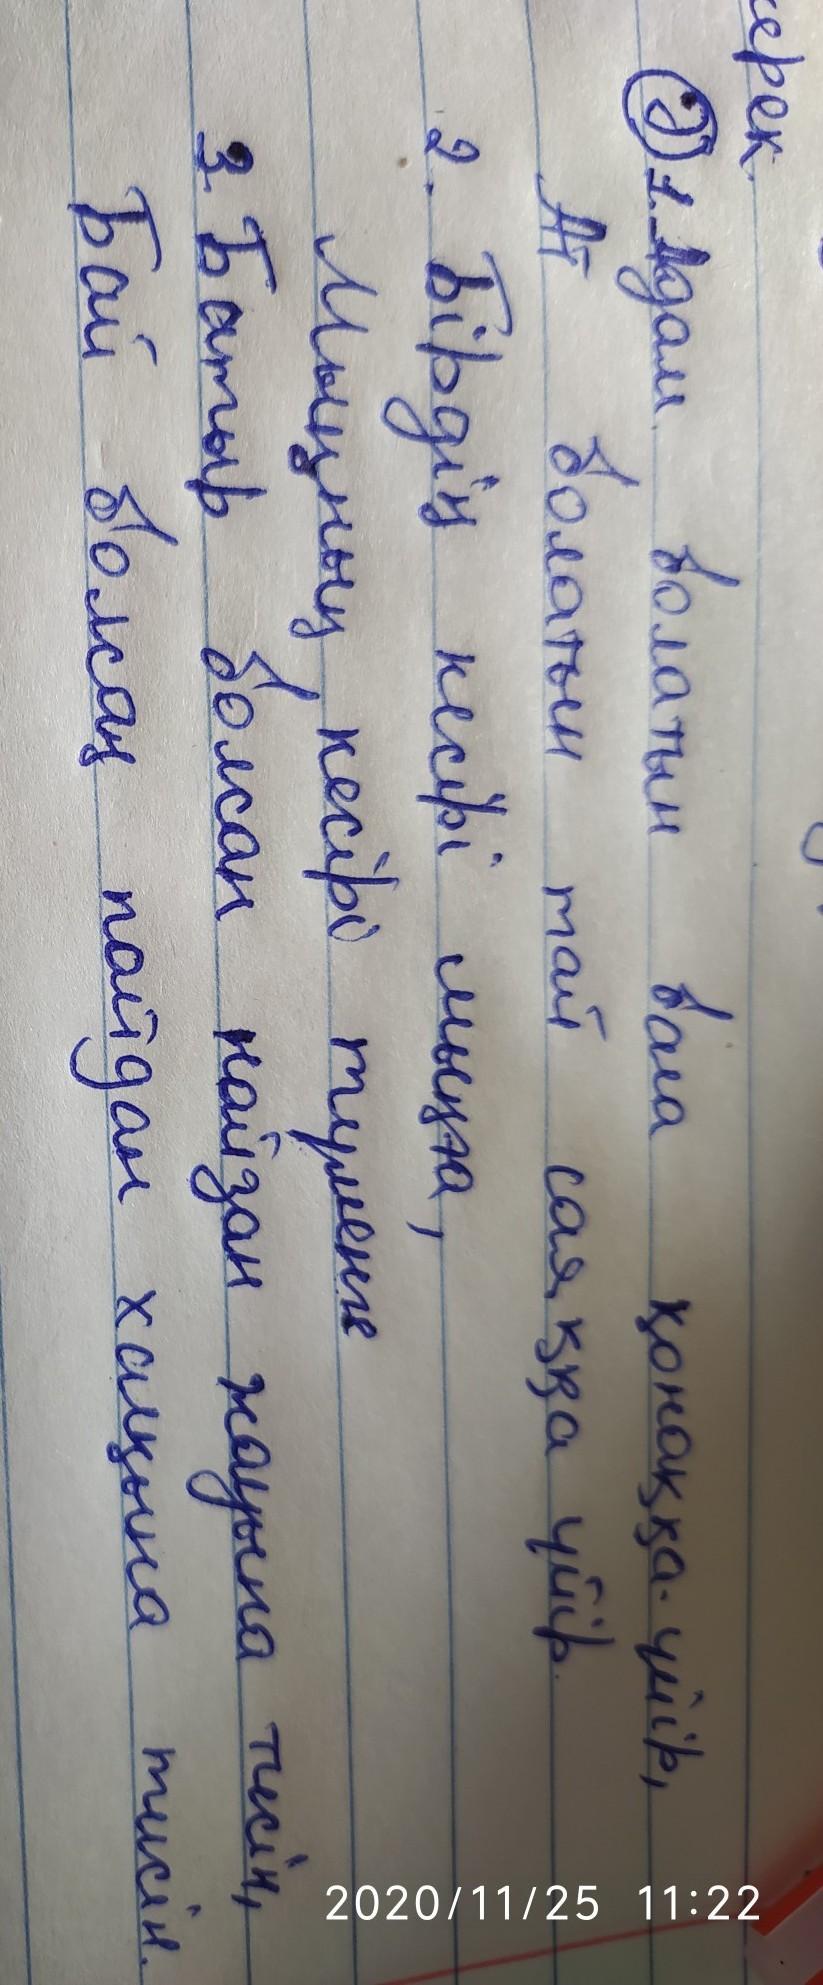 керек.
Ә 1. Адам болатын бала қонаққа үйір,
Ат болатын тай саяққа үйір.
2. Бірдің кесірі мыңға,
Мыңның кесірі түменге
3. Батыр болсаң найзаң жауыңа тисін,
Бай болсаң пайдаң халқыңа тисін.
2020/11/25 11:22